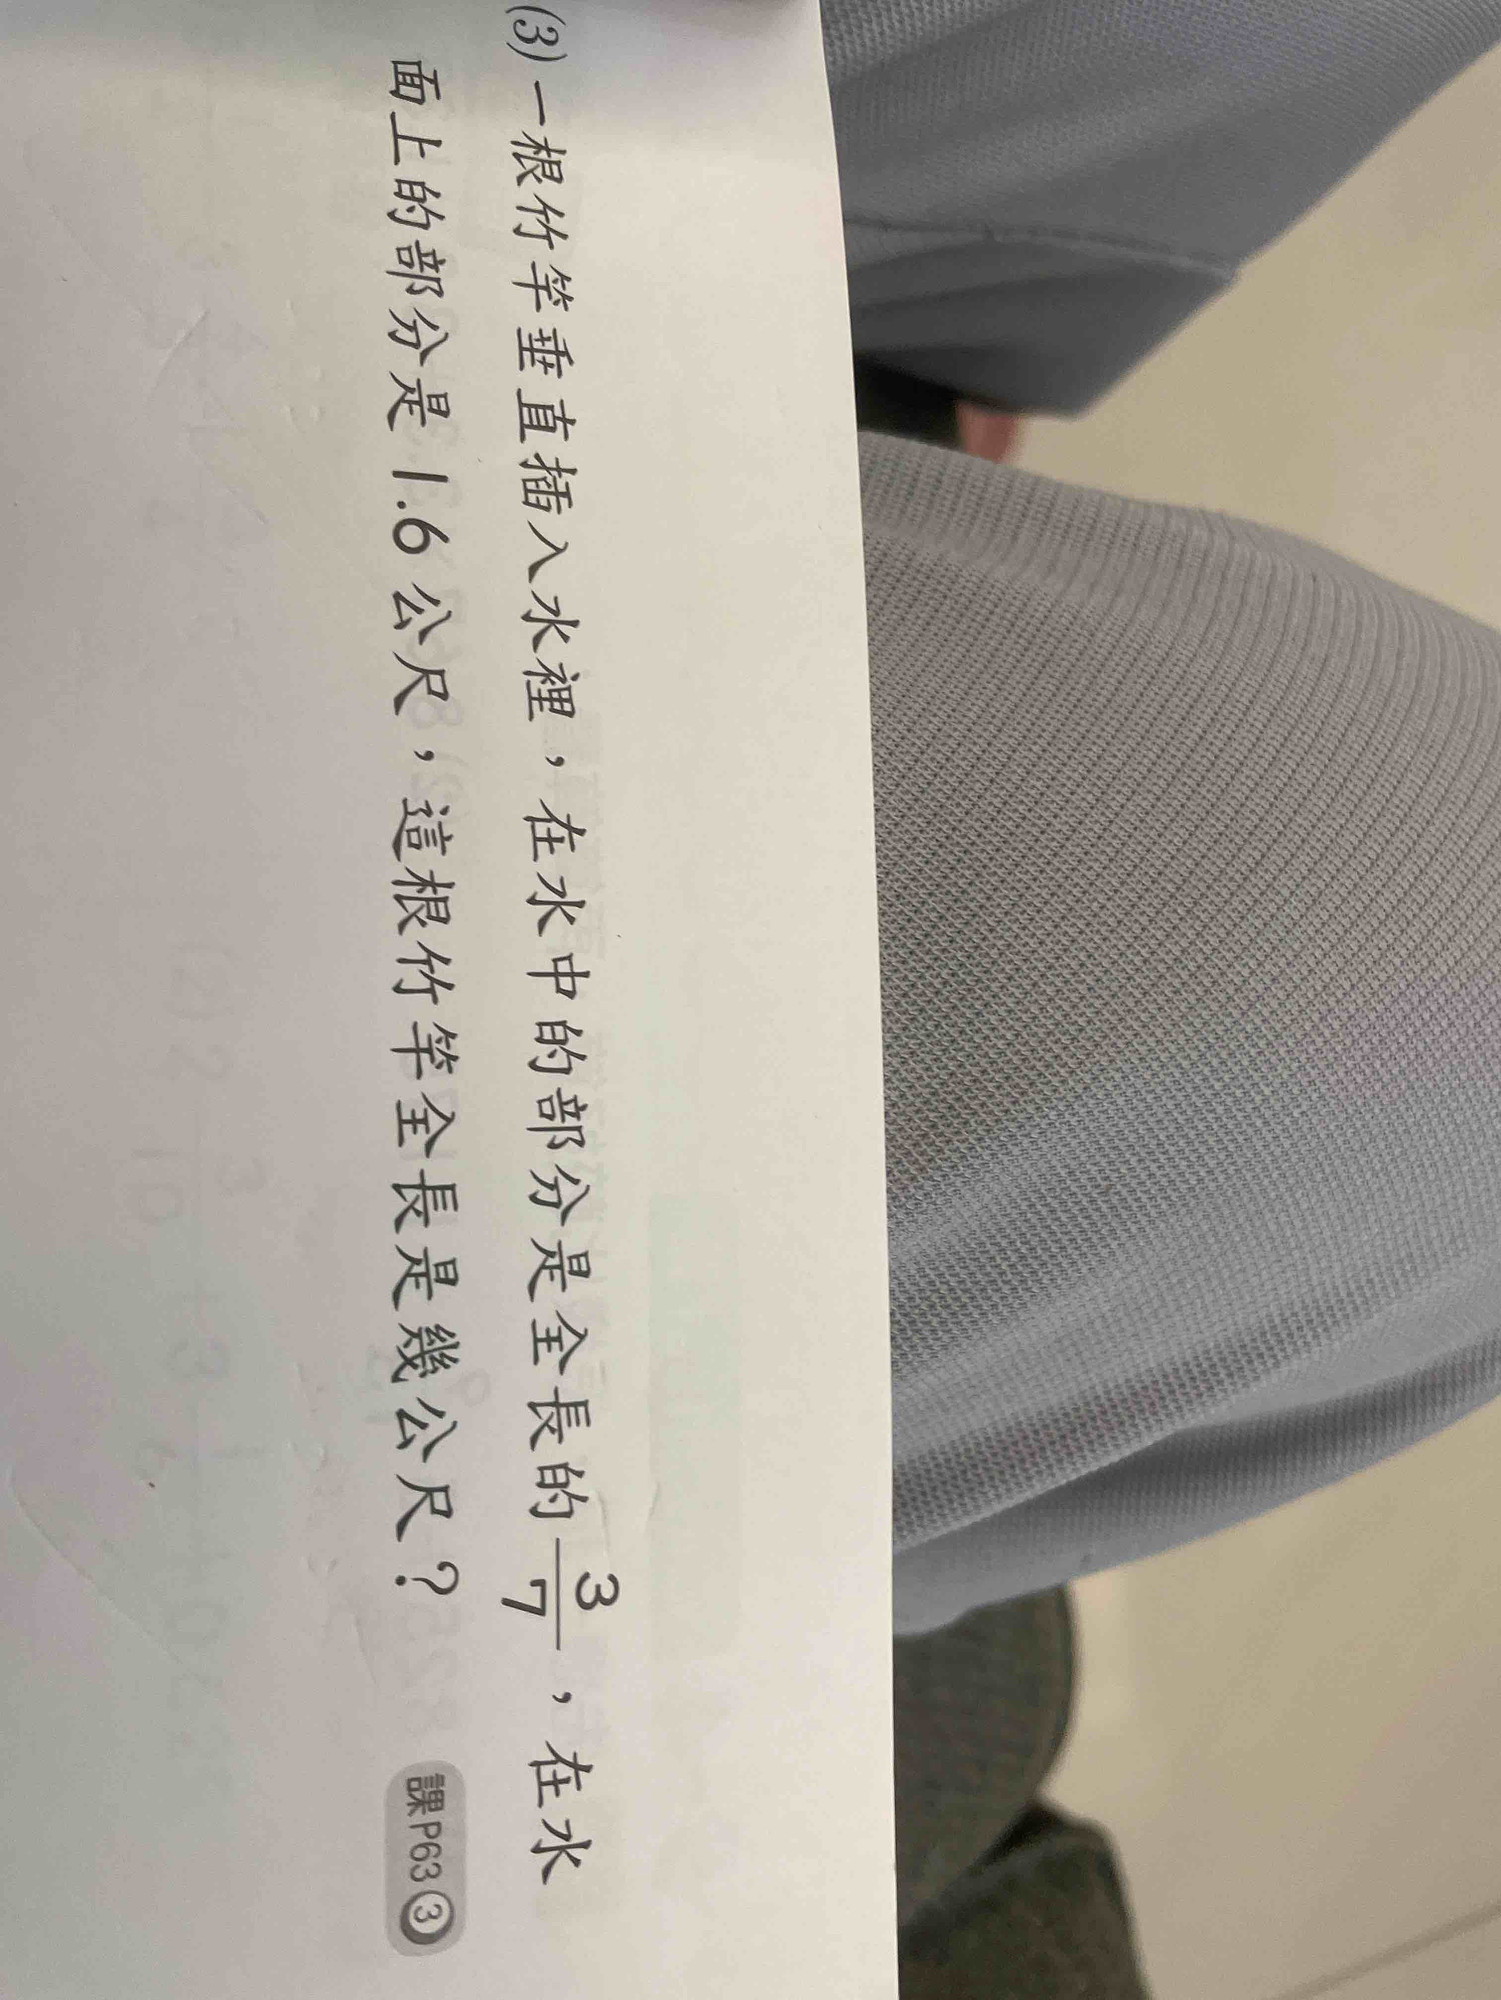 (3) 一根竹竿垂直插入水裡，在水中的部分是全長的 3/7 ，在水
面上的部分是 1.6 公尺，這根竹竿全長是幾公尺？ 課P63③